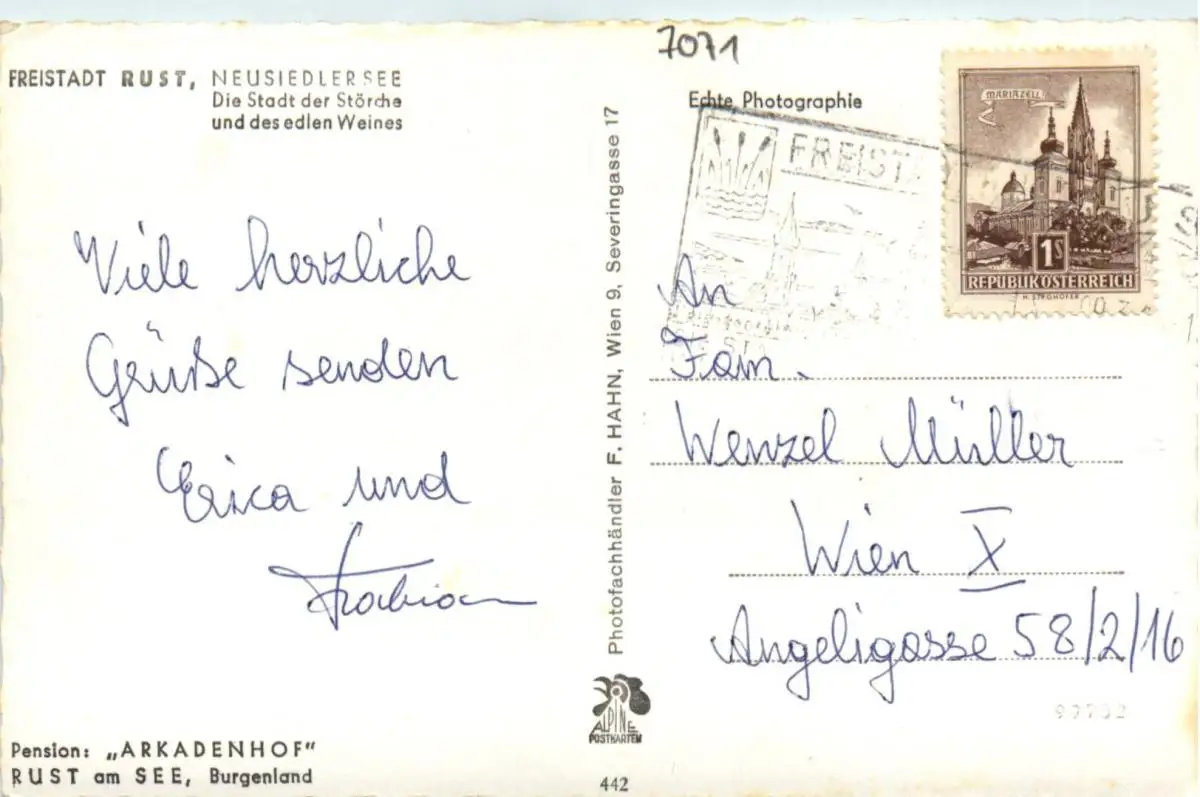 7071
FREISTADT RUST, NEUSIEDLERSEE
Die Stadt der Störche
und des edlen Weines
Viele herzliche
Grüße senden
Erica und
Pension: „ARKADENHOF“
RUST am SEE, Burgenland
Photofachhändler F. HAHN, Wien 9, Severingasse 17
ALPINE
POSTKARTEN
442
Echte Photographie
FREIST
MARIAZELL
1S
REPUBLIK ÖSTERREICH
H. STROHOFER
An
Fam.
Wenzel Müller
Wien X
Angeligasse 58/2/16